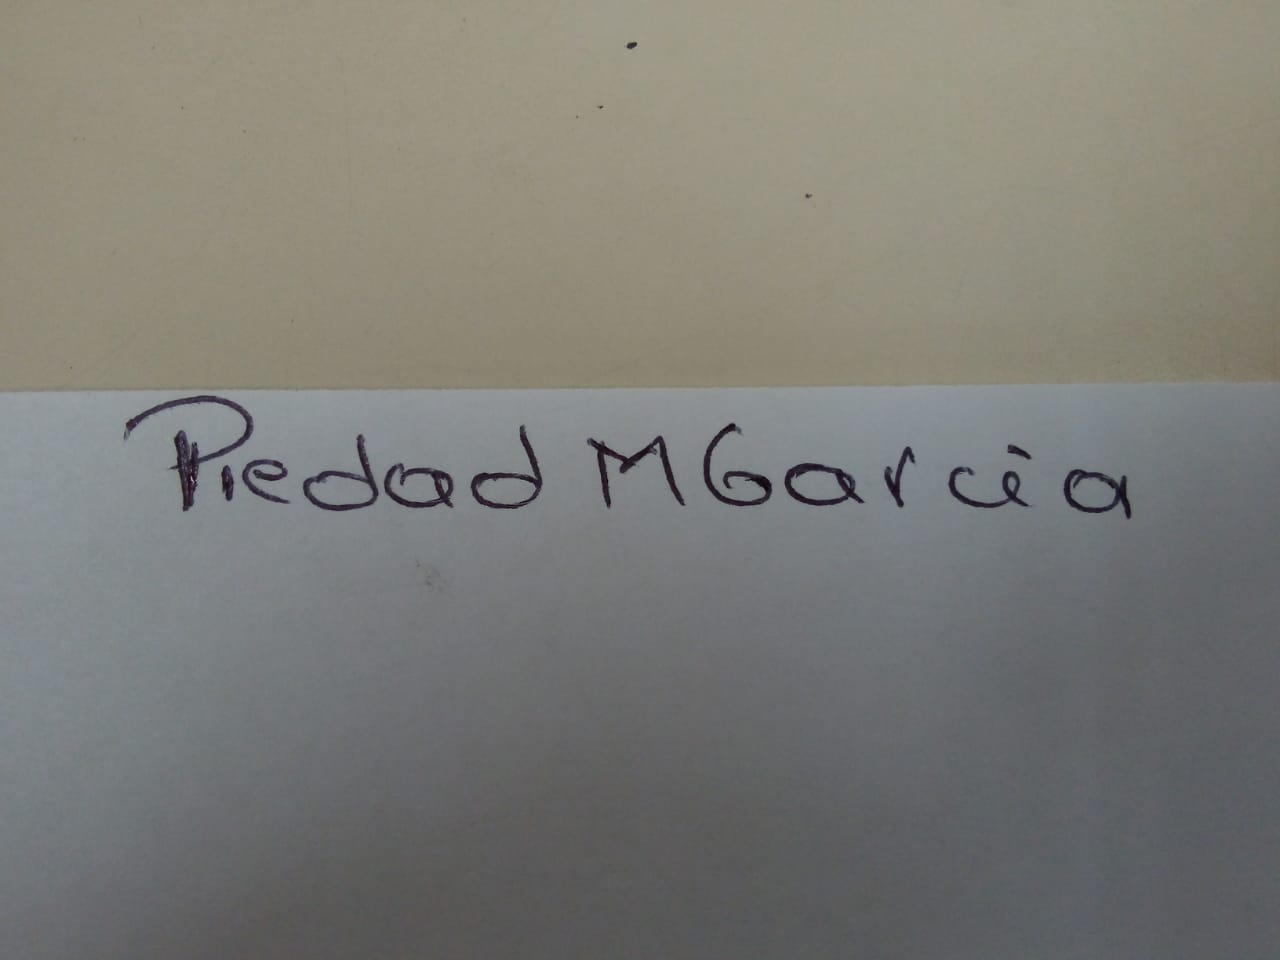 Piedad M Garcia